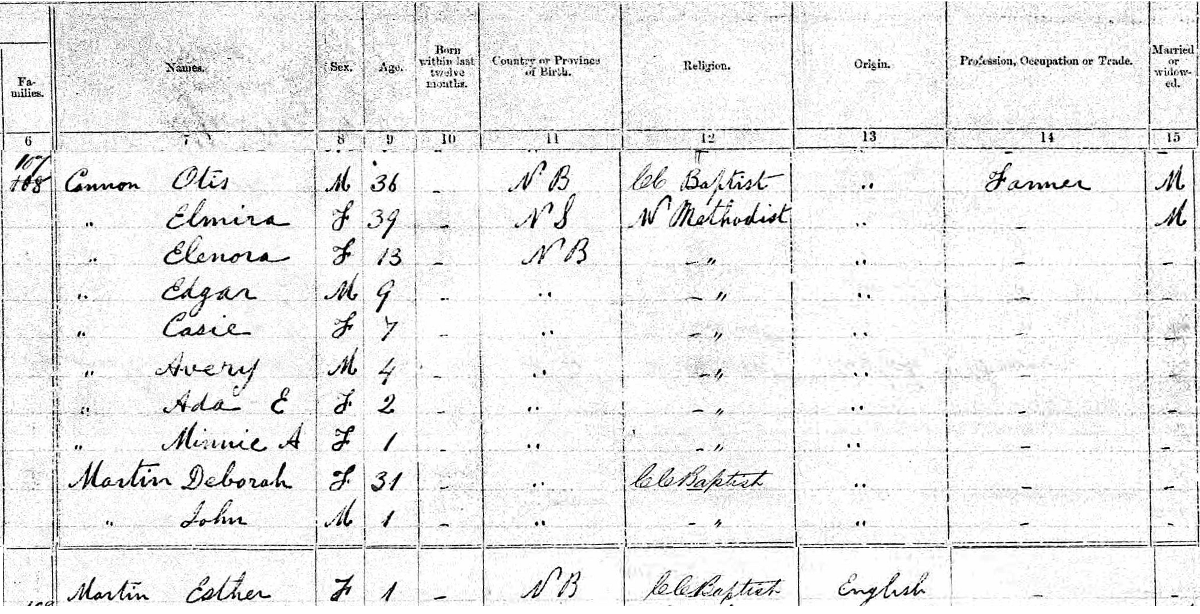 Fa-milies. Names. Sex. Age. Born within last twelve months. Country or Province of Birth. Religion. Origin. Profession, Occupation or Trade. Married or widow-ed.
6 7 8 9 10 11 12 13 14 15
107
108 Cannon Otis M 36 - N B CC Baptist " Farmer M
" Elmira F 39 - N S W Methodist " - M
" Elenora F 13 - N B - " " - -
" Edgar M 9 - " - " " - -
" Casie F 7 - " - " " - -
" Avery M 4 - " - " " - -
" Ada E F 2 - " - " " - -
" Minnie A F 1 - " - " " - -
Martin Deborah F 31 - " CC Baptist " - -
" John M 1 - " - " " - -
Martin Esther F 1 - N B CC Baptist English - -